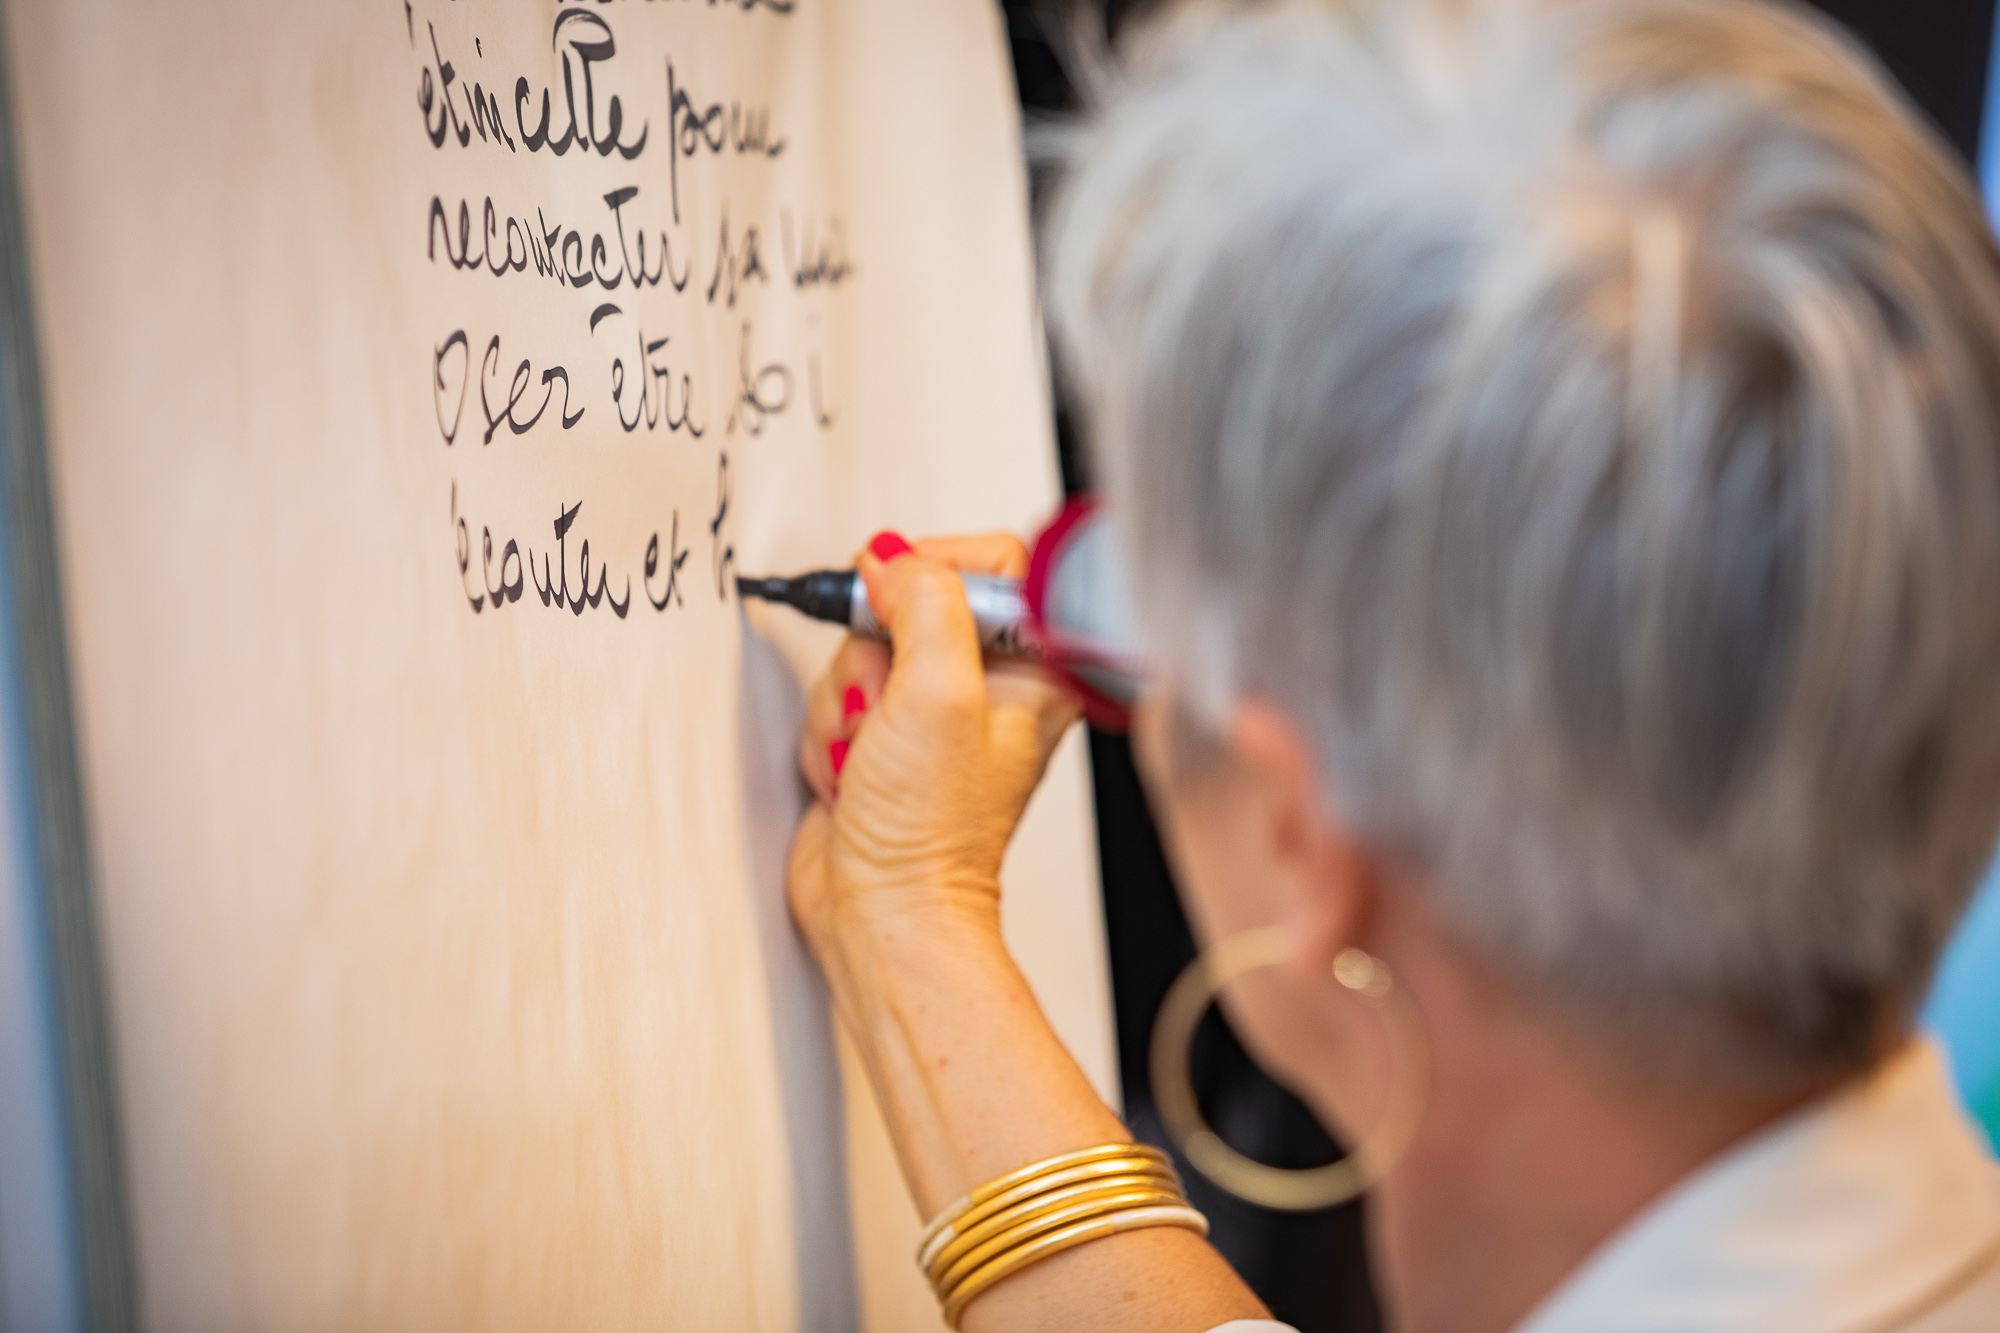 étincelle pour
reconnecter sa voix
Oser être soi
écouter et